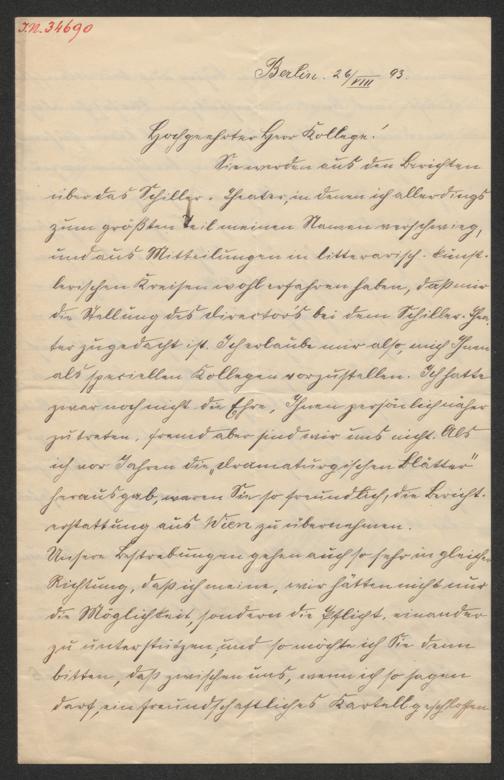 I.N. 34690
Berlin. 26/VIII 93.
Hochgeehrter Herr Kollege!
Sie werden aus den Berichten
über das Schiller-Theater, in denen ich allerdings
zum größten Teil meinen Namen verschwieg,
und aus Mitteilungen in litterarisch-künst-
lerischen Kreisen wohl erfahren haben, daß mir
die Stellung des Director's bei dem Schiller-Thea-
ter zugedacht ist. Ich erlaube mir also, mich Ihnen
als speciellen Kollegen vorzustellen. Ich hatte
zwar noch nicht die Ehre, Ihnen persönlich näher
zu treten, fremd aber sind wir uns nicht. Als
ich vor Jahren die „Dramaturgischen Blätter"
herausgab, waren Sie so freundlich, die Bericht-
erstattung aus Wien zu übernehmen.
Unsere Bestrebungen gehen auch so sehr in gleicher
Richtung, daß ich meine, wir hätten nicht nur
die Möglichkeit, sondern die Pflicht, einander
zu unterstützen, und so möchte ich Sie denn
bitten, daß zwischen uns, wenn ich so sagen
darf, ein freundschaftliches Kartell geschlossen